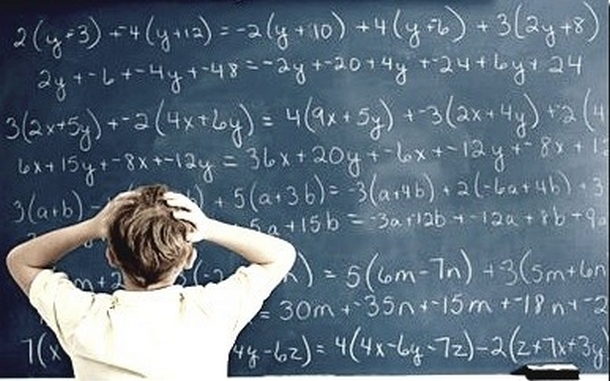 2(y+3) + -4(y+12) = -2(y+10) + 4(y+-6) + 3(2y+8)
2y + -6 + -4y + -48 = -2y + -20 + 4y + -24 + 6y + 24
3(2x+5y) + -2(4x+6y) = 4(9x+5y) + -3(2x+4y) + 2(4
6x + 15y + -8x + -12y = 36x + 20y + -6x + -12y + 8x + 1
3(a+b) ) + 5(a+3b) = -3(a+4b) + 2(-6a+4b) + 3
5a + 15b = -3a + 12b + -12a + 8b + 9a
m+2 (-2 ) = 5(6m-7n) + 3(5m+6n
= 30m + -35n + -15m + -18n + -2
7(x 4y-6z) = 4(4x-6y-7z)-2(z+7x+3y)